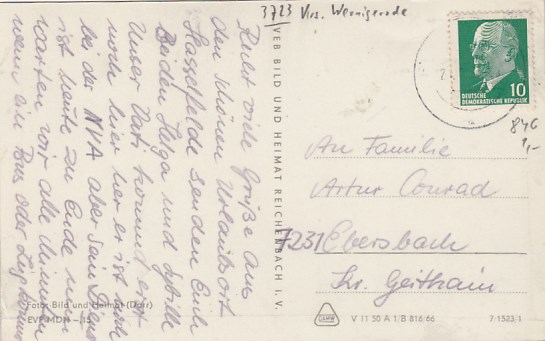 3723 Krs. Wernigerode
Recht viele Grüße aus
den schönen Urlaubsort
Hasselfelde senden Euch
Beiden Helga und
Unser Vati kommt erst
noch hier her er ist noch
bei der NVA aber sein Dienst
ist heute zu Ende nun
warten wir alle
wenn ein Bus oder Zug kommt
VEB BILD UND HEIMAT REICHENBACH I. V.
Foto: Bild und Heimat (Dörr)
DEUTSCHE
DEMOKRATISCHE REPUBLIK
10
846
1,-
An Familie
Artur Conrad
7231 Ebersbach
Kr. Geithain
V 11 50 A 1/B 816/66
7-1523/1